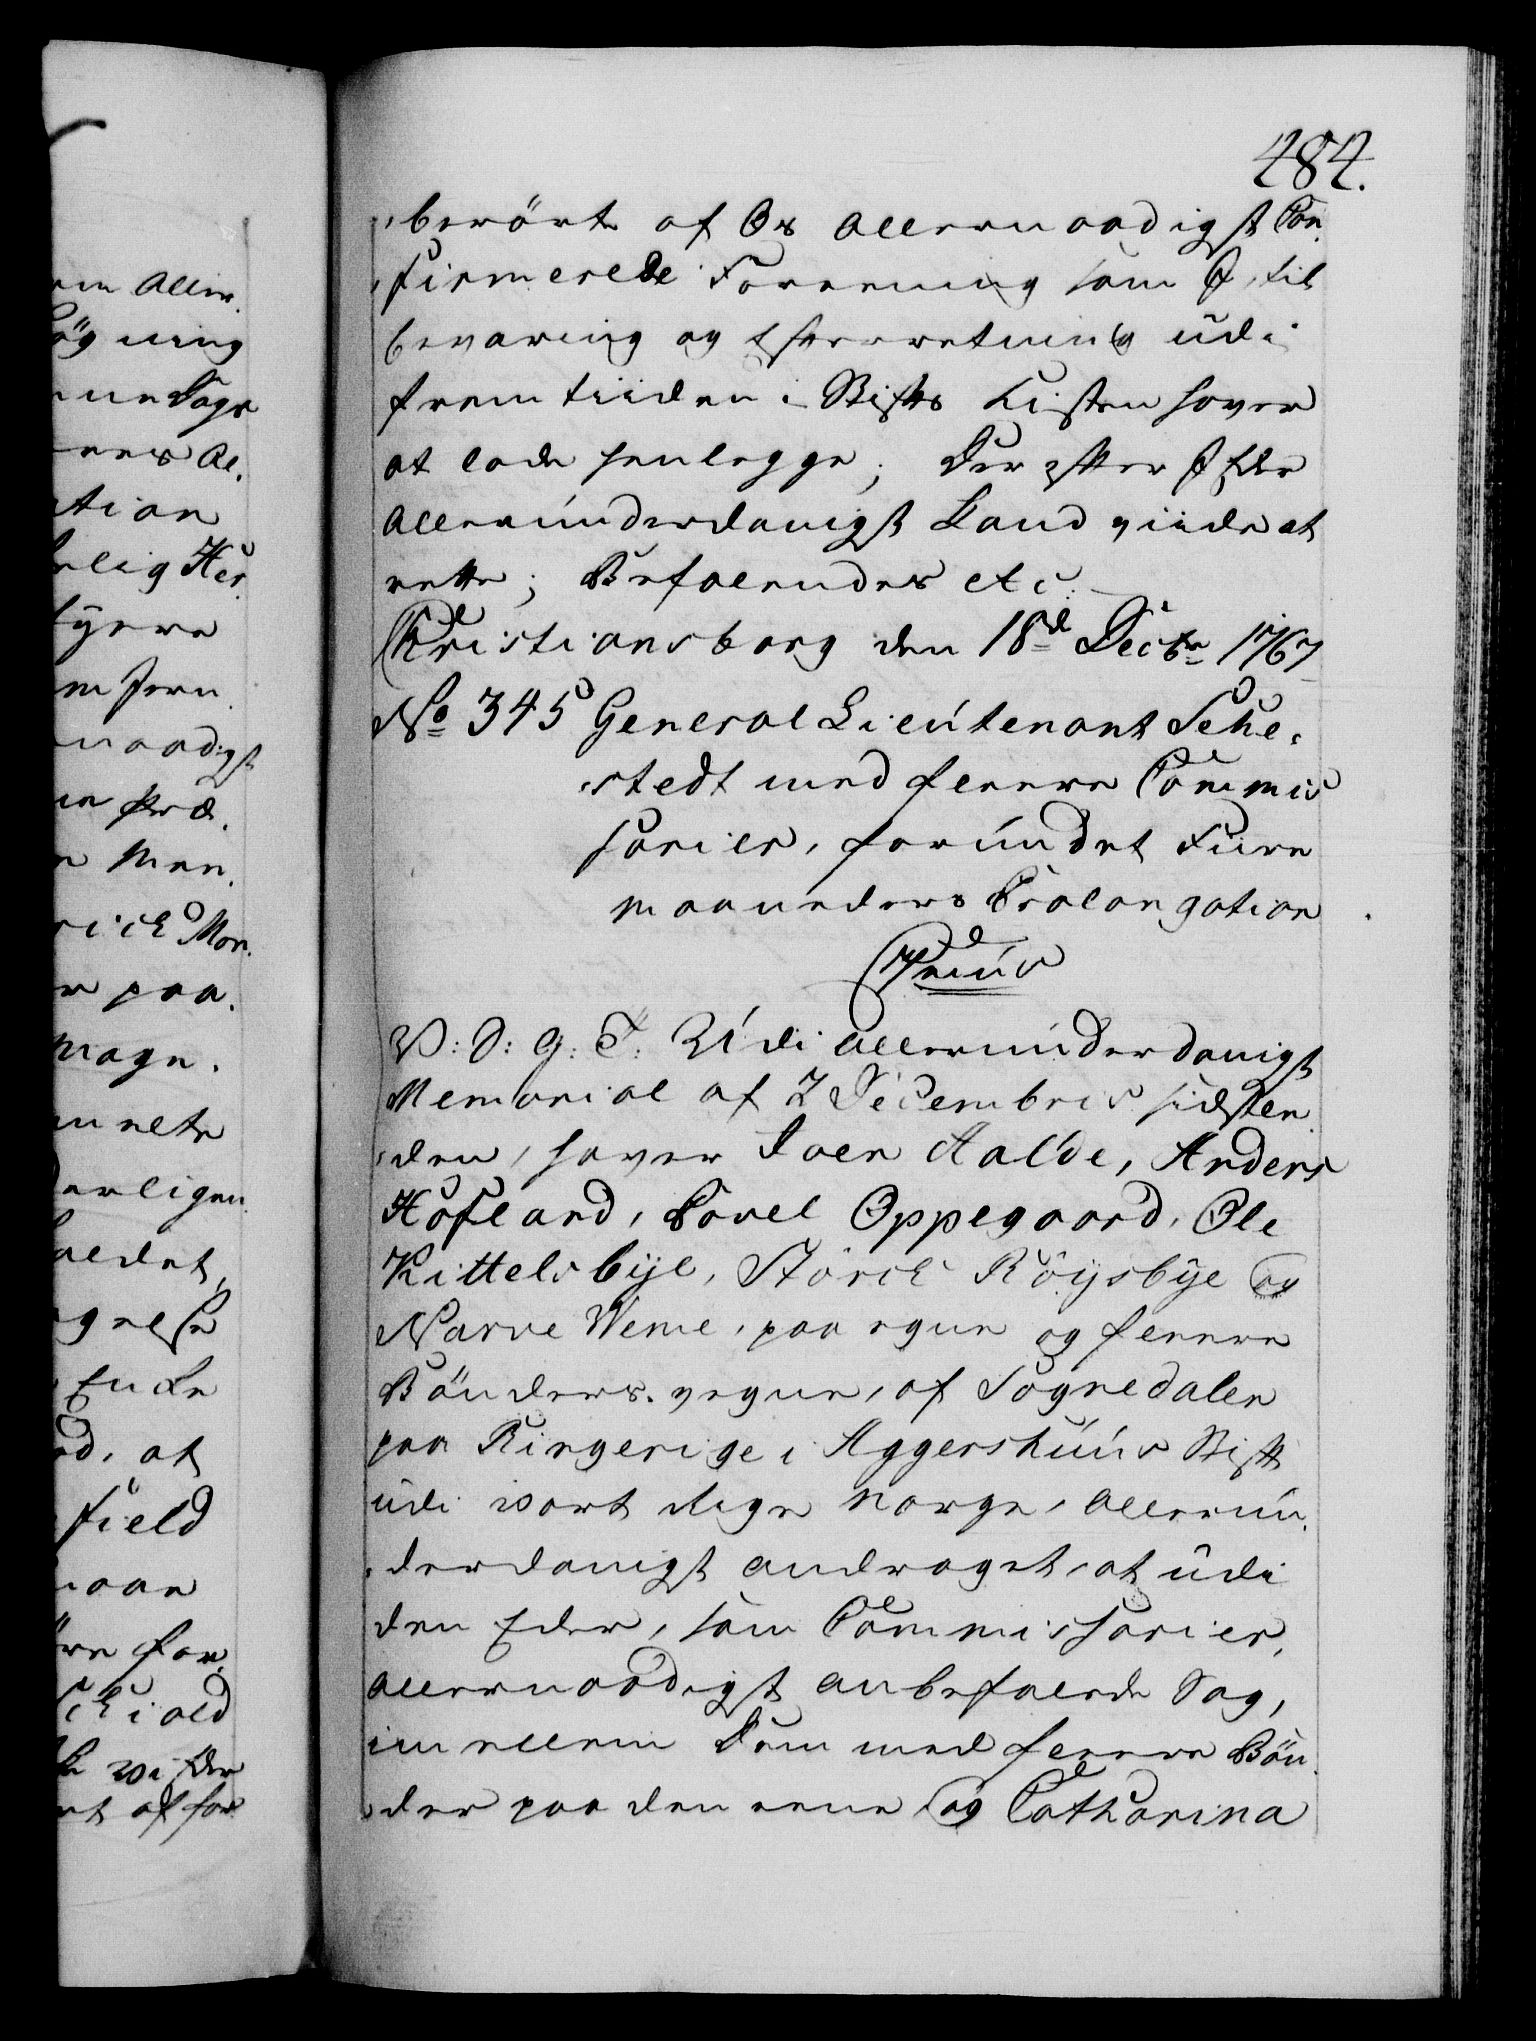 484.
berört af Os allernaadigst Con¬
firmerede Forening som I, til
bevaring og Efterretning udi
fremtiiden i Stifts Kisten haver
at lade henlegge; Der efter I Eder
allerunderdanigst Haver at
rette; Befalendes etc:
Christiansborg den 18de Decbr 1767
No 345 General Lieutenant Sehe¬
stedt med fleere Commis
sarier, for undet Fiire
maaneders Prolongation
C7mus
V: S: G: T: Udi allerunderdanigst
Memorial af 2 Decembris sidsten
den, haver Joen Aalde, Anders
Hofland, Povel Oppegaard, Ole
Kittelsbye, Störck Röysbye og
Narve Weme, paa egne og fleere
Bönders vegne, af Sognedalen
paa Ringerige i Aggershuus Stift
udi vort Rige Norge, allerun¬
derdanigst andraget, at udi
den Eder, som Commissarier,
allernaadigst anbefalede Sag,
imellem Dem med fleere Bön¬
der paa den eene og Catharina